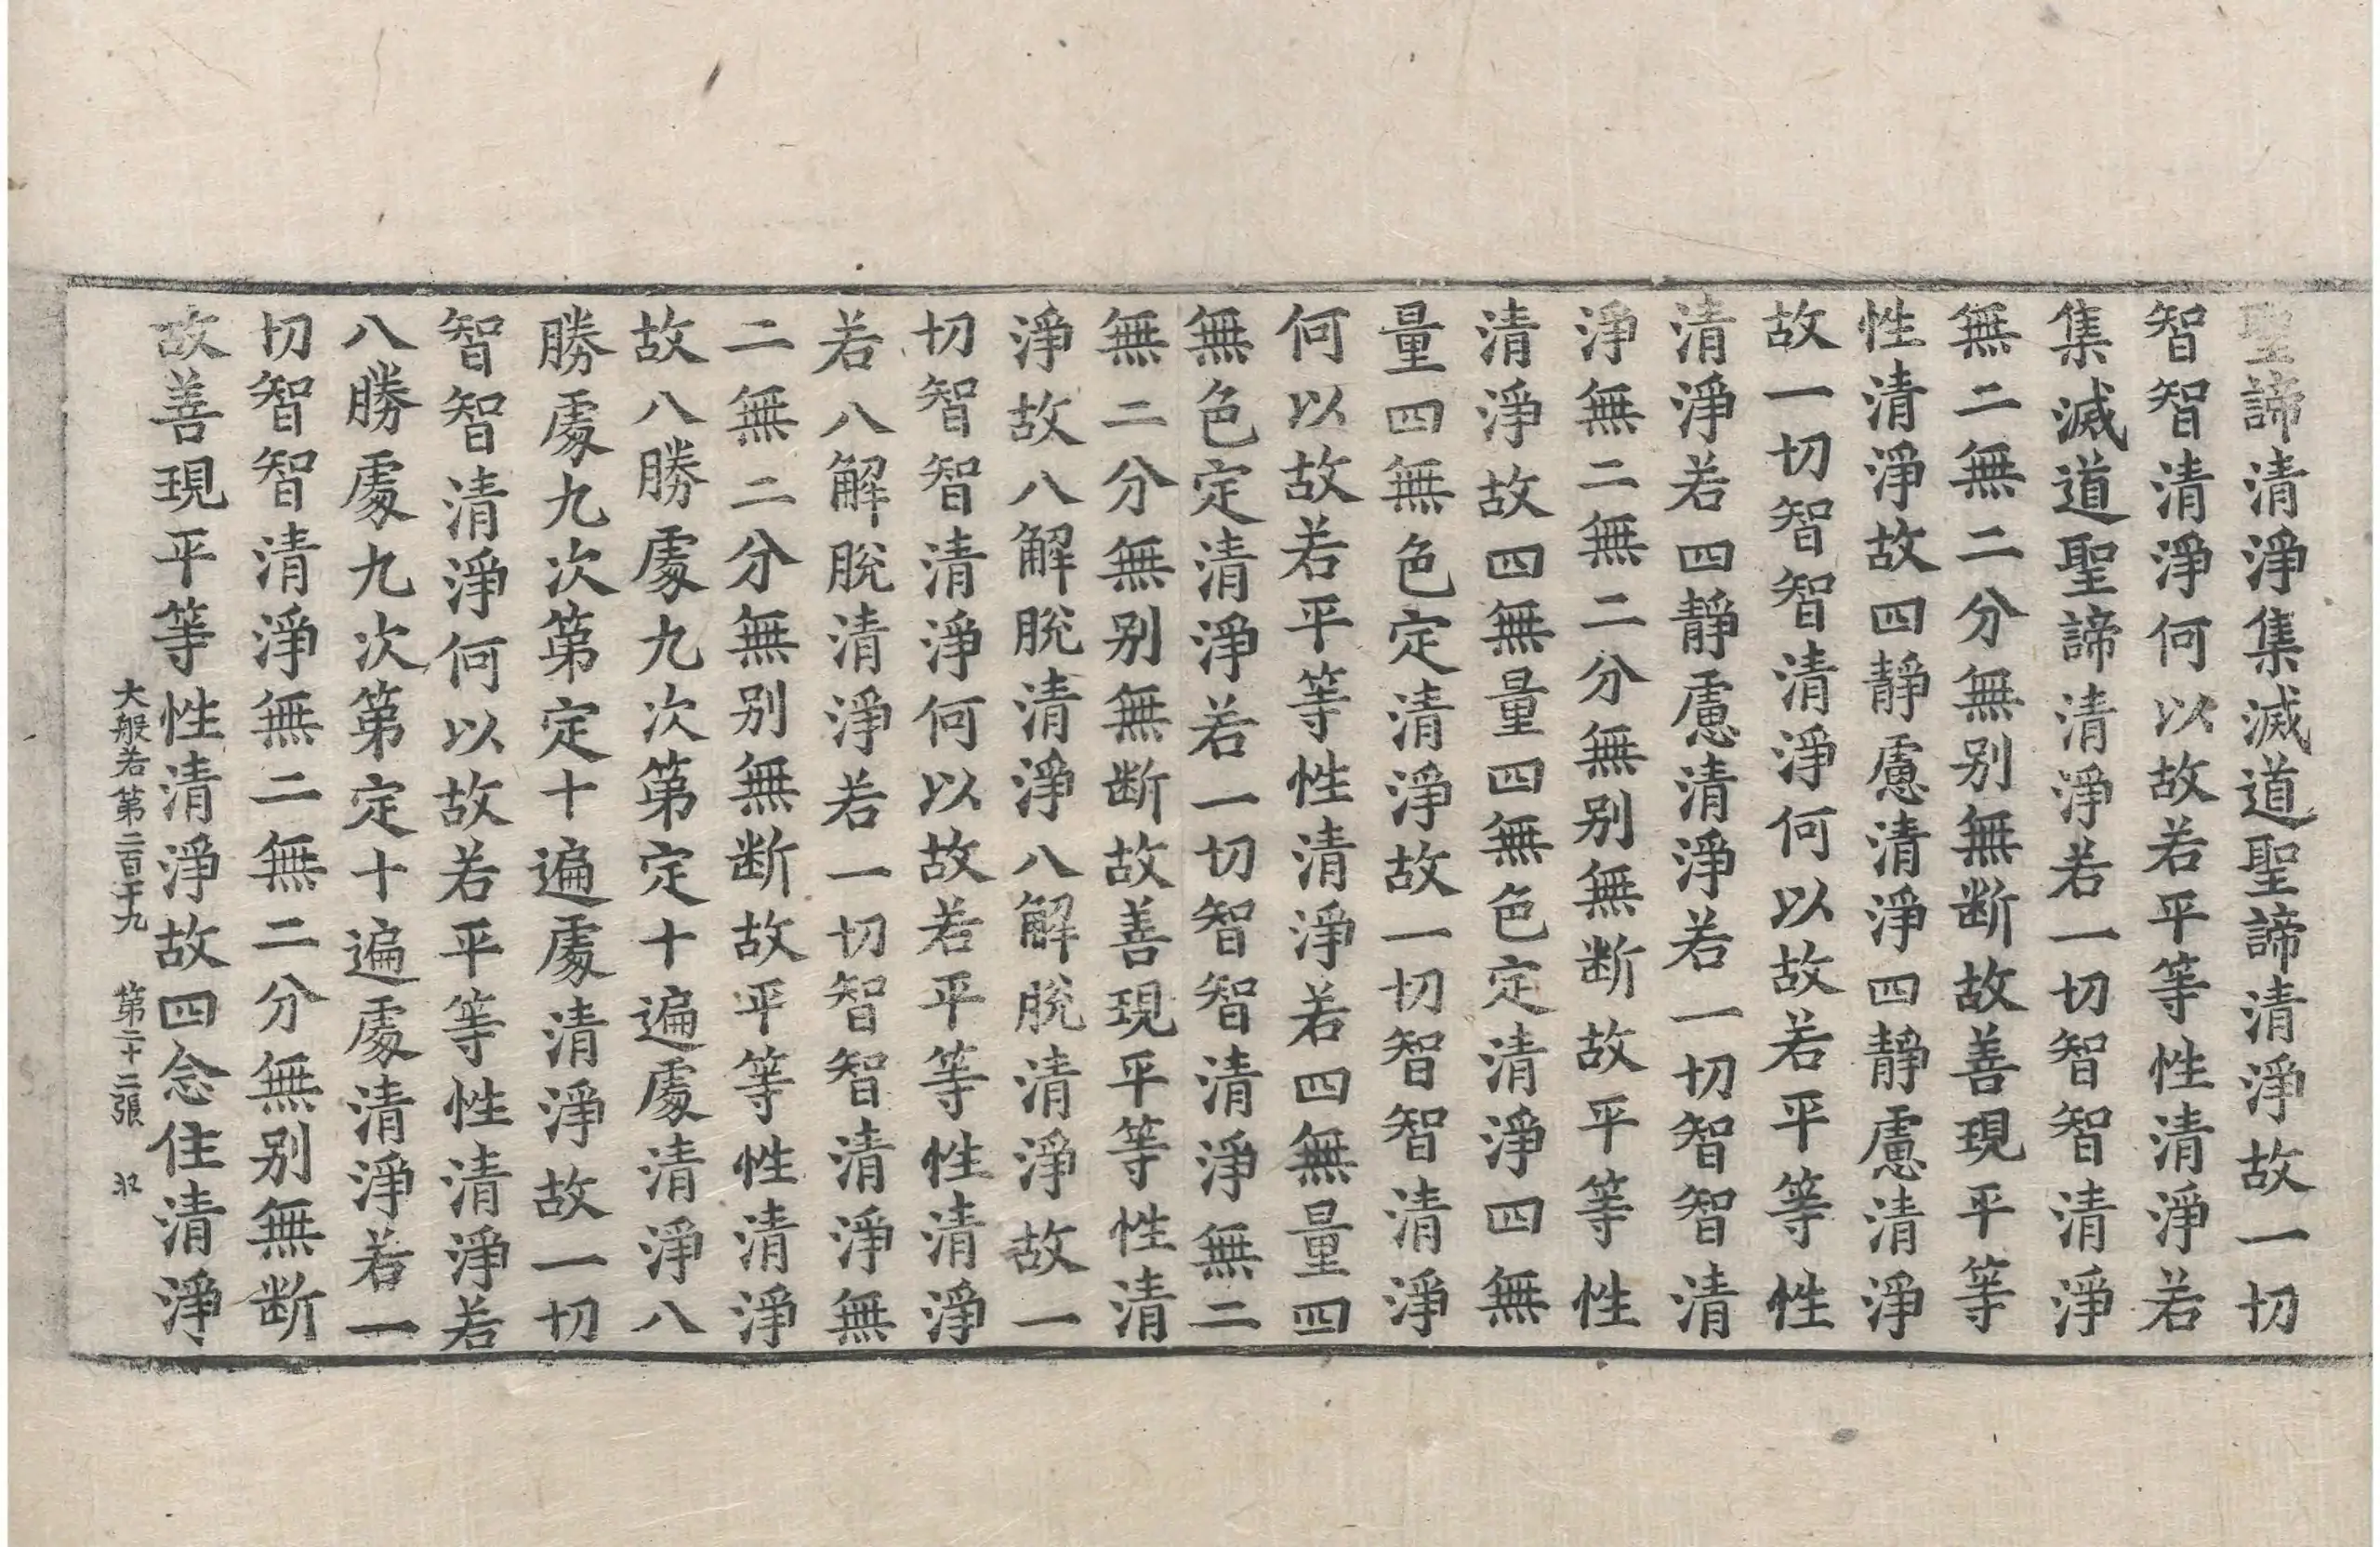 聖諦清淨集滅道聖諦清淨故一切
智智清淨何以故若平等性清淨若
集滅道聖諦清淨若一切智智清淨
無二無二分無别無断故善現平等
性清淨故四靜慮清淨四靜慮清淨
故一切智智清淨何以故若平等性
清淨若四靜慮清淨若一切智智清
淨無二無二分無别無断故平等性
清淨故四無量四無色定清淨四無
量四無色定清淨故一切智智清淨
何以故若平等性清淨若四無量四
無色定清淨若一切智智清淨無二
無二分無别無断故善現平等性清
淨故八解脫清淨八解脫清淨故一
切智智清淨何以故若平等性清淨
若八解脫清淨若一切智智清淨無
二無二分無别無断故平等性清淨
故八勝處九次第定十遍處清淨八
勝處九次第定十遍處清淨故一切
智智清淨何以故若平等性清淨若
八勝處九次第定十遍處清淨若一
切智智清淨無二無二分無别無断
故善現平等性清淨故四念住清淨
大般若第二百十九 第二十二張